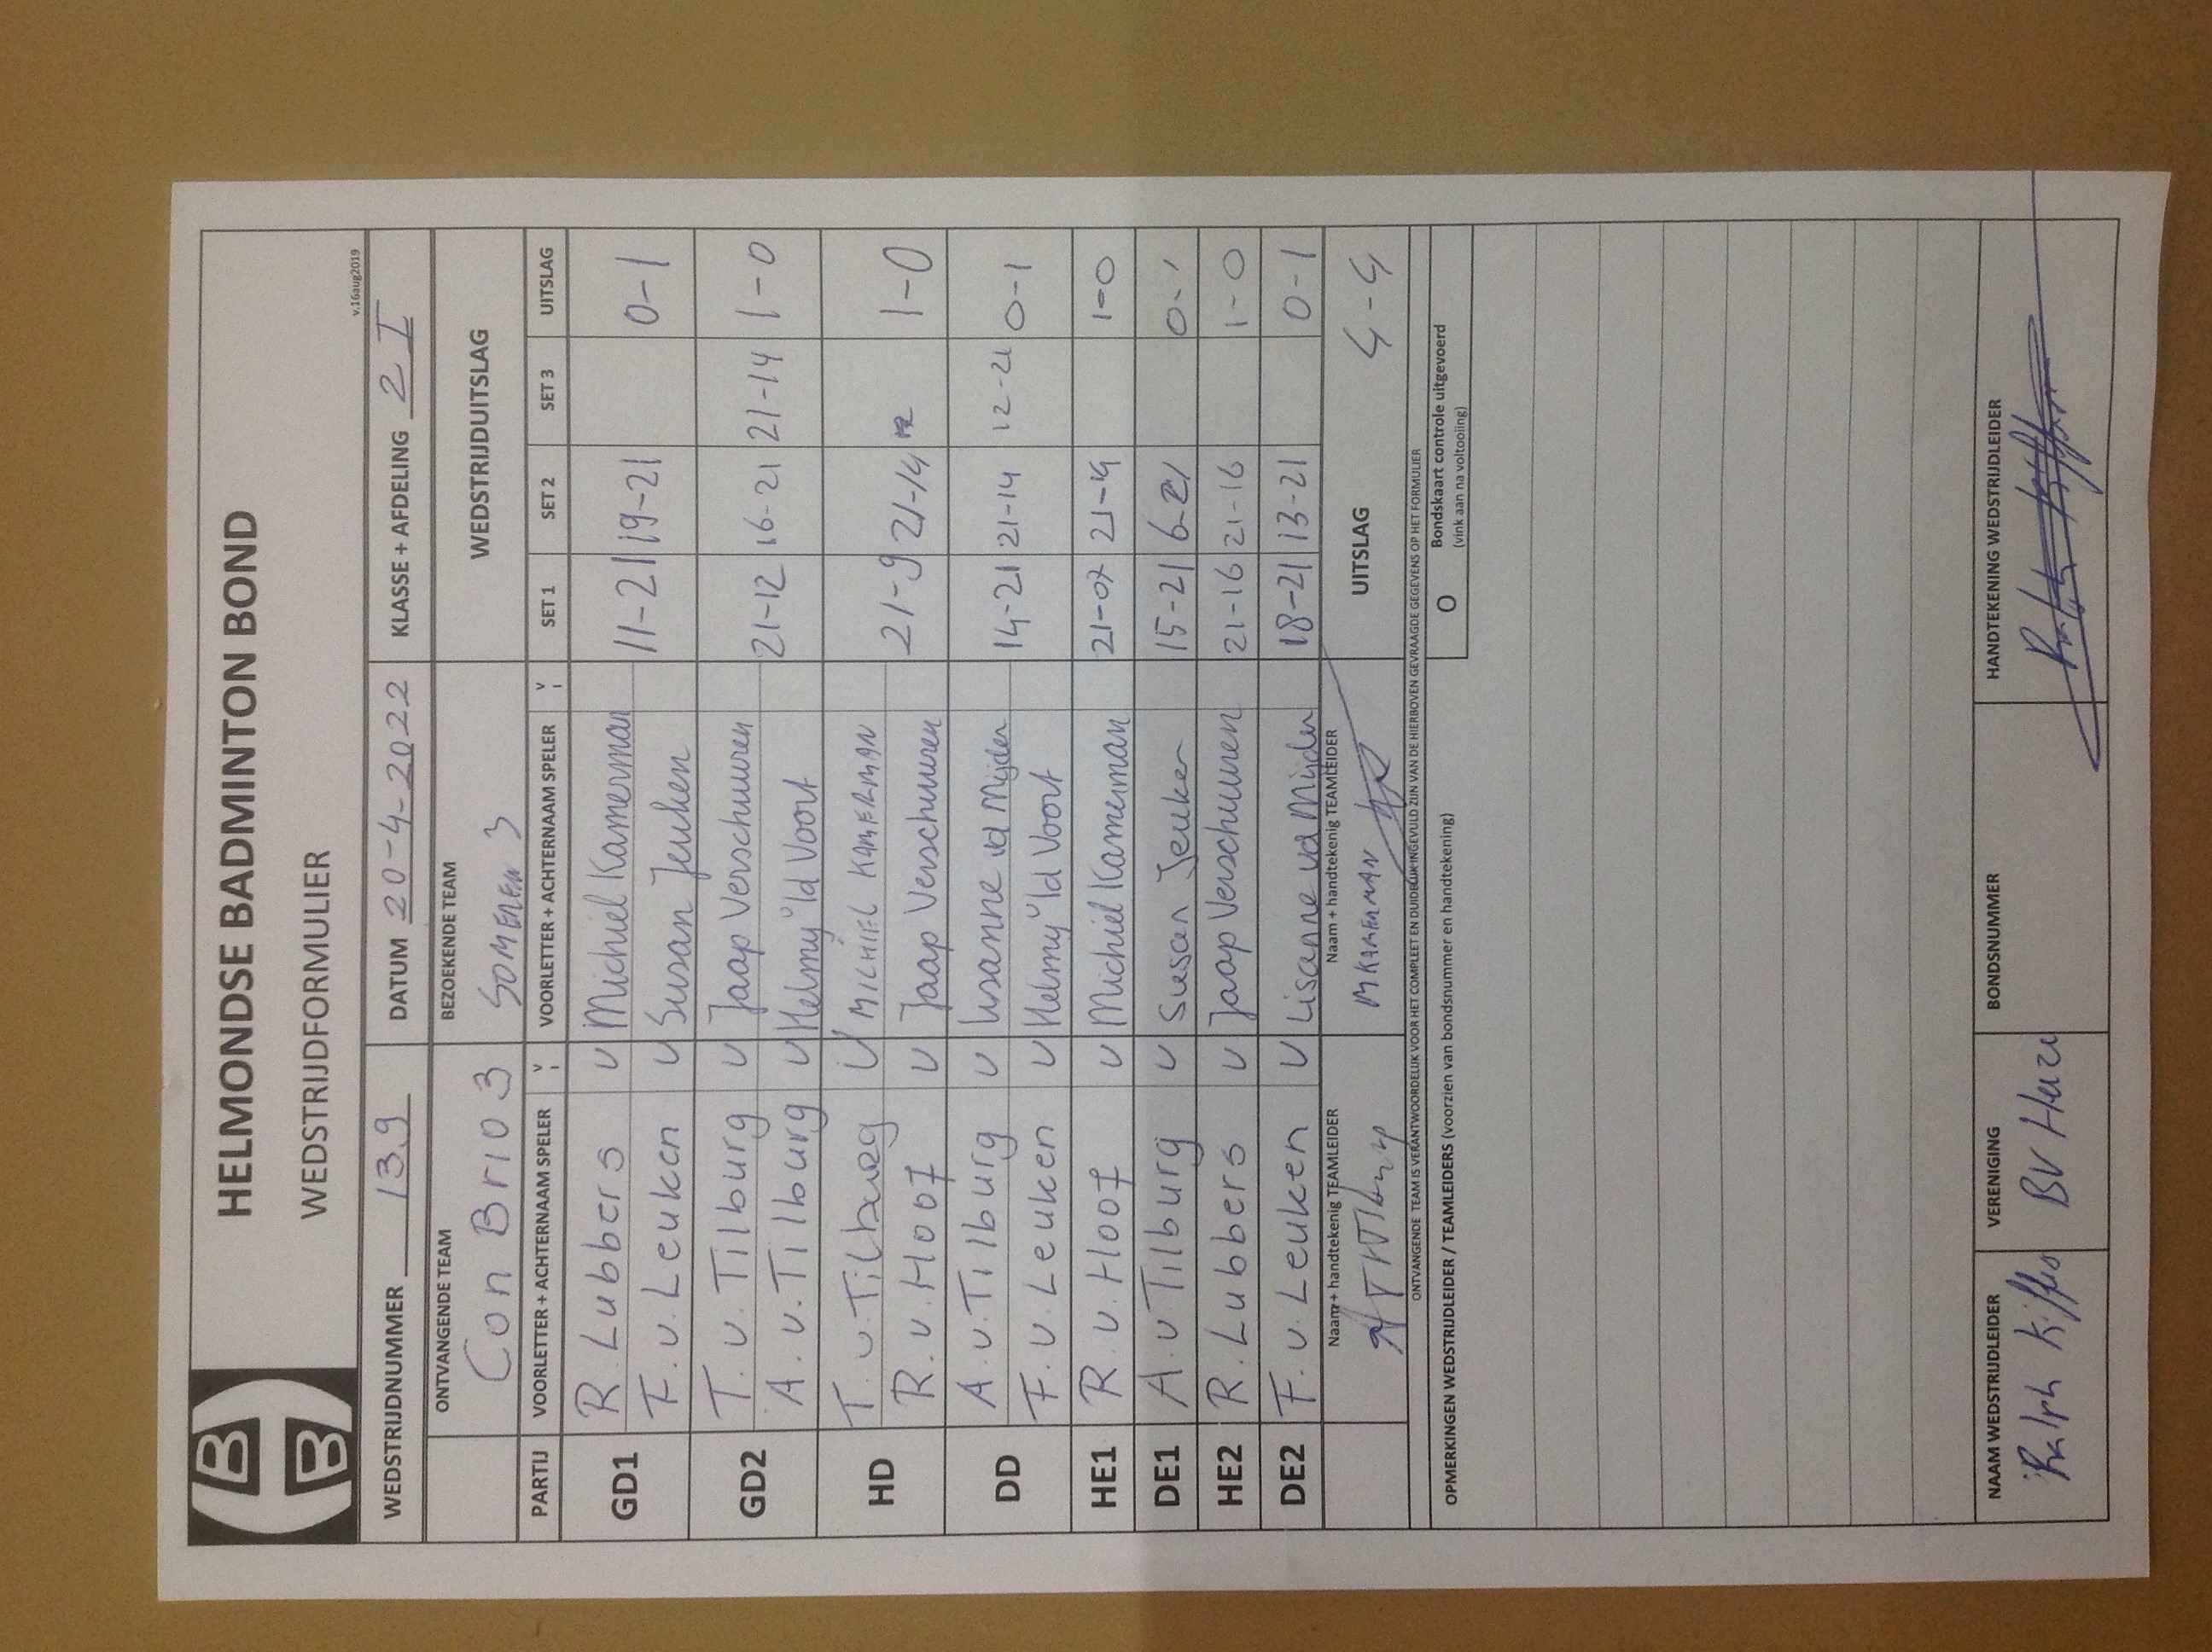 HELMONDSE BADMINTON BOND
WEDSTRIJDFORMULIER
v.16aug2019
WEDSTRIJDNUMMER 139 DATUM 20-4-2022 KLASSE + AFDELING 2 I
ONTVANGENDE TEAM BEZOEKENDE TEAM WEDSTRIJDUITSLAG
Con Brio 3 SOMEREN 3
PARTIJ VOORLETTER + ACHTERNAAM SPELER V VOORLETTER + ACHTERNAAM SPELER V SET 1 SET 2 SET 3 UITSLAG
GD1 R. Lubbers v Michiel Kamerman
F. v. Leuken v Susan Jeuken 11-21 19-21 0-1
GD2 T. v. Tilburg v Jaap Verschuuren
A. v. Tilburg v Helmy vd Voort 21-12 16-21 21-14 1-0
HD T. v. Tilburg v MICHIEL KAMERMAN
R. v. Hoof v Jaap Verschuuren 21-9 21-14 1-0
DD A. v. Tilburg v Lisanne vd Mijden
F. v. Leuken v Helmy vd Voort 14-21 21-14 12-21 0-1
HE1 R. v. Hoof v Michiel Kamerman 21-07 21-19 1-0
DE1 A. v Tilburg v Susan Jeuken 15-21 6-21 0-1
HE2 R. Lubbers v Jaap Verschuuren 21-16 21-16 1-0
DE2 F. v. Leuken v Lisanne vd Mijden 18-21 13-21 0-1
Naam + handtekenig TEAMLEIDER Naam + handtekenig TEAMLEIDER UITSLAG 4-4
M KAMERMAN
ONTVANGENDE TEAM IS VERANTWOORDELIJK VOOR HET COMPLEET EN DUIDELIJK INGEVULD ZIJN VAN DE HIERBOVEN GEVRAAGDE GEGEVENS OP HET FORMULIER
OPMERKINGEN WEDSTRIJDLEIDER / TEAMLEIDERS (voorzien van bondsnummer en handtekening)
O Bondskaart controle uitgevoerd
(vink aan na voltooiing)
NAAM WEDSTRIJDLEIDER VERENIGING BONDSNUMMER HANDTEKENING WEDSTRIJDLEIDER
Ralph BV